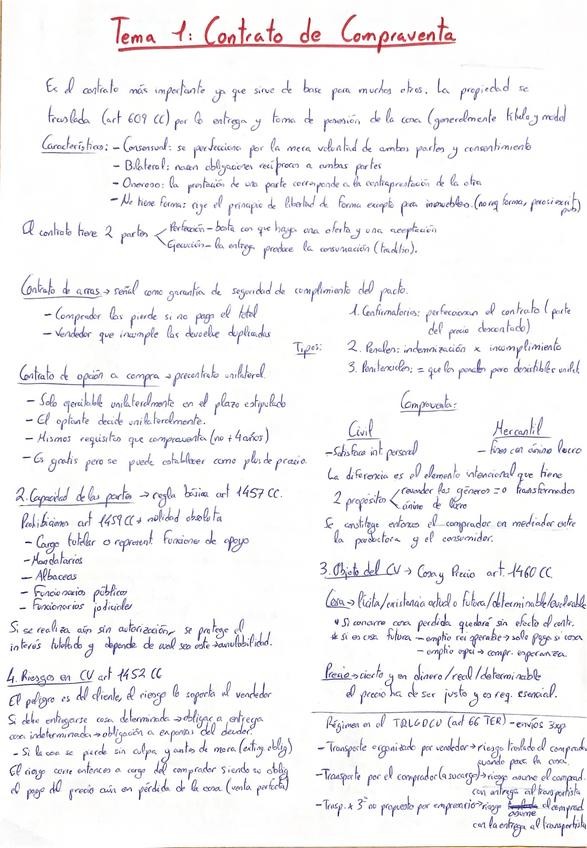 Tema 1: Contrato de Compraventa
Es el contrato más importante ya que sirve de base para muchos otros. La propiedad se
traslada (art 609 CC) por la entrega y toma de posesión de la cosa (generalmente título y modo)
Características: - Consensual: se perfecciona por la mera voluntad de ambas partes y consentimiento
- Bilateral: nacen obligaciones recíprocas a ambas partes
- Oneroso: la prestación de una parte corresponde a la contraprestación de la otra
- No tiene forma: rige el principio de libertad de forma excepto para inmuebles (no req forma, pero si escrit. pub)
El contrato tiene 2 partes
Perfección - basta con que haya una oferta y una aceptación
Ejecución - la entrega produce la consumación (traditio).
Contrato de arras → señal como garantía de seguridad de cumplimiento del pacto.
- Comprador las pierde si no paga el total
- Vendedor que incumple las devuelve duplicadas
Tipos:
1. Confirmatorias: perfeccionan el contrato (parte
del precio descontado)
2. Penales: indemnización x incumplimiento
3. Penitenciales: = que las penales pero desistibles unilat
Contrato de opción a compra → precontrato unilateral
- Solo ejercitable unilateralmente en el plazo estipulado
- El optante decide unilateralmente.
- Mismos requisitos que compraventa (no + 4 años)
- Es gratis pero se puede establecer como plus de precio.
Compraventa:
Civil
- Satisface int personal
Mercantil
- fines con ánimo lucro
La diferencia es el elemento intencional que tiene
2 propósitos
revender los géneros = o transformados
ánimo de lucro
Se constituye entonces el comprador en mediador entre
la productora y el consumidor.
2. Capacidad de las partes → regla básica art 1457 CC.
Prohibiciones art 1459 CC → nulidad absoluta
- Cargo tutelar o represent. Funciones de apoyo
- Mandatarios
- Albaceas
- Funcionarios públicos
- Funcionarios judiciales
Si se realiza aún sin autorización, se protege el
interés tutelado y depende de cual sea este → anulabilidad.
3. Objeto del CV → Cosa y Precio art. 1460 CC.
Cosa → lícita/existencia actual o futura/determinable/
* Si concurre cosa perdida quedará sin efecto el contr.
* si es cosa futura - emptio rei speratae → solo paga si cosa
- emptio spei → compr. esperanza.
Precio → cierto y en dinero/real/determinable
el precio ha de ser justo y es req. esencial.
4. Riesgos en CV art 1452 CC
El peligro es del cliente, el riesgo lo soporta el vendedor
Si debe entregarse cosa determinada → obligac a entrega
cosa indeterminada → obligación a expensas del deudor.
- Si la cosa se pierde sin culpa y antes de mora (exting. oblig)
El riesgo corre entonces a cargo del comprador siendo su oblig
el pago del precio aún en pérdida de la cosa (venta perfecta)
Régimen en el TRLGDCU (art 66 TER) - envíos
- Transporte organizado por vendedor → riesgo traslado al comprador
cuando posee la cosa.
- Transporte por el comprador (a su cargo) → riesgo asume el comprad.
con entrega al transportista
- Trasp. x 3º no propuesto por empresario → riesgo asume el comprad
con la entrega al transportista